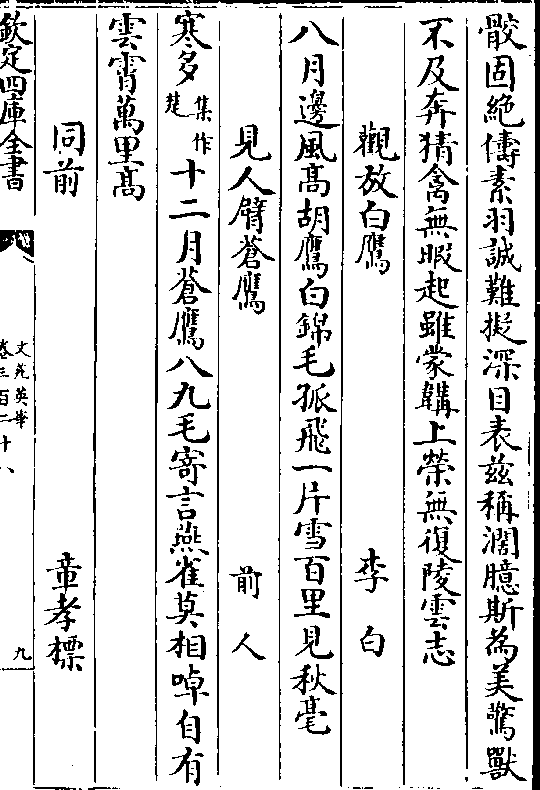 骹固絶儔素羽誠難擬深目表兹稱濶臆斯為美驚獸
不及奔猜禽無暇起雖蒙韝上榮無復陵雲志
觀放白鷹 李白
八月邊風髙胡鷹白錦毛孤飛一片雪百里見秋毫
見人臂蒼鷹 前人
寒多集作楚十二月蒼鷹八九毛寄言燕雀莫相啅自有
雲霄萬里髙
同前 章孝標
欽定四庫全書
文苑英華
卷三百二十八
九